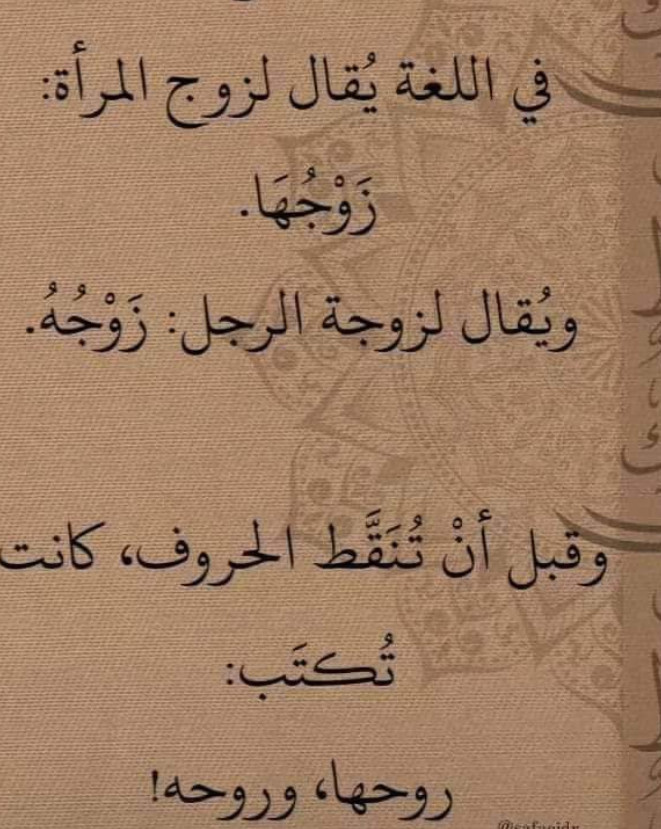 في اللغة يُقال لزوج المرأة:
زَوْجُهَا.
ويُقال لزوجة الرجل: زَوْجُهُ.
وقبل أنْ تُنَقَّط الحروف، كانت
تُكتَب:
روحها، وروحه!